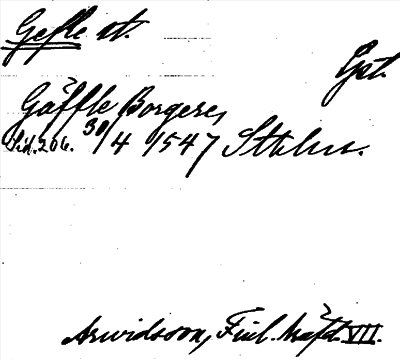 Gefle st.
Gst.
Gäffle Borgere,
Sid. 206. 30/4 1547 Sthlm.
Arwidsson, Finl. Häfd. VII.